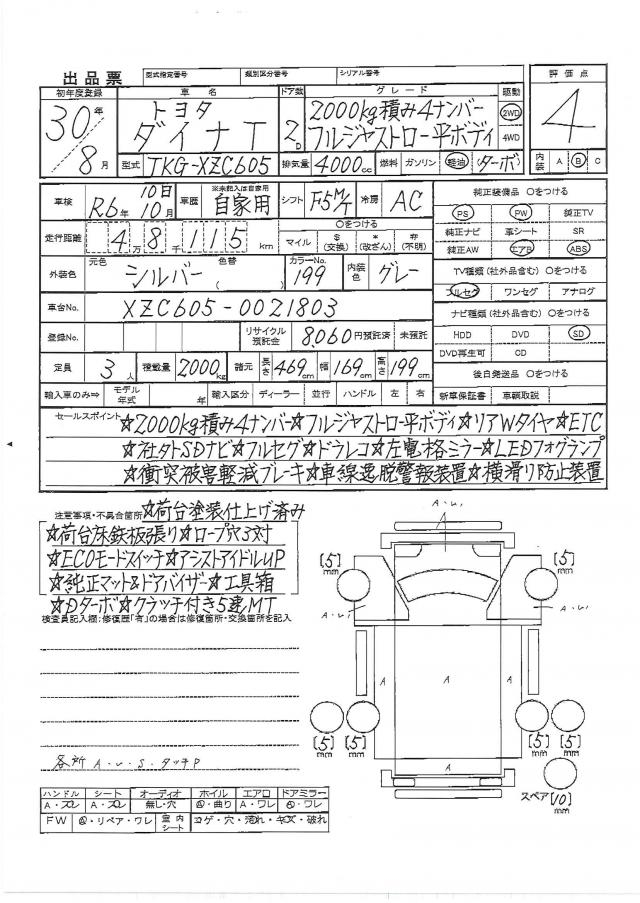 出品票 型式指定番号 類別区分番号 シリアル番号 評価点
初年度登録 車名 ドア数 グレード 駆動
30年 8月 トヨタ ダイナT 2D 2000kg積み4ナンバー 2WD 4
フルジャストロー平ボディ 4WD
型式 TKG-XZC605 排気量 4000cc 燃料 ガソリン 軽油 ターボ 内装 A B C
車検 R6年 10日 10月 車歴 ※未記入は自家用 自家用 シフト F5M/T 冷房 AC 純正装備品 〇をつける
PS PW 純正TV
走行距離 4万8千115km 〇をつける マイル $(交換) *(改ざん) #(不明) 純正ナビ 革シート SR
純正AW エアB ABS
外装色 元色 シルバー 色替( ) カラーNo. 199 内装色 グレー TV種類(社外品含む) 〇をつける
フルセグ ワンセグ アナログ
車台No. XZC605-0021803 ナビ種類(社外品含む) 〇をつける
登録No. リサイクル預託金 8,060円預託済 未預託 HDD DVD SD
DVD再生可 CD
定員 3人 積載量 2000kg 諸元 長さ469cm 幅169cm 高さ199cm 後日発送品 〇をつける
輸入車のみ⇒ モデル年式 年 輸入区分 ディーラー 並行 ハンドル 左 右 新車保証書 車輌取説
セールスポイント ☆2000kg積み4ナンバー☆フルジャストロー平ボディ☆リアWタイヤ☆ETC
☆社外SDナビ☆フルセグ☆ドラレコ☆左電格ミラー☆LEDフォグランプ
☆衝突被害軽減ブレーキ☆車線逸脱警報装置☆横滑り防止装置
注意事項・不具合箇所 ☆荷台塗装仕上げ済み
☆荷台床鉄板張り☆ロープ穴3対
☆ECOモードスイッチ☆アシストアイドルUP
☆純正マット&ドアバイザー☆工具箱
☆Dターボ☆クラッチ付き5速MT
検査員記入欄:修復歴「有」の場合は修復箇所・交換箇所を記入
A・U,
[5]mm [5]mm
A・U, A・U,
A A A
[5]mm [5]mm [5]mm [5]mm
A
各所 A・U・S・タッチP
スペア[10]mm
ハンドル シート オーディオ ホイル エアロ ドアミラー
A・スレ A・スレ 無し・穴 A・曲り A・ワレ A・ワレ
FW A・リペア・ワレ 室内シート コゲ・穴・汚れ・キズ・破れ